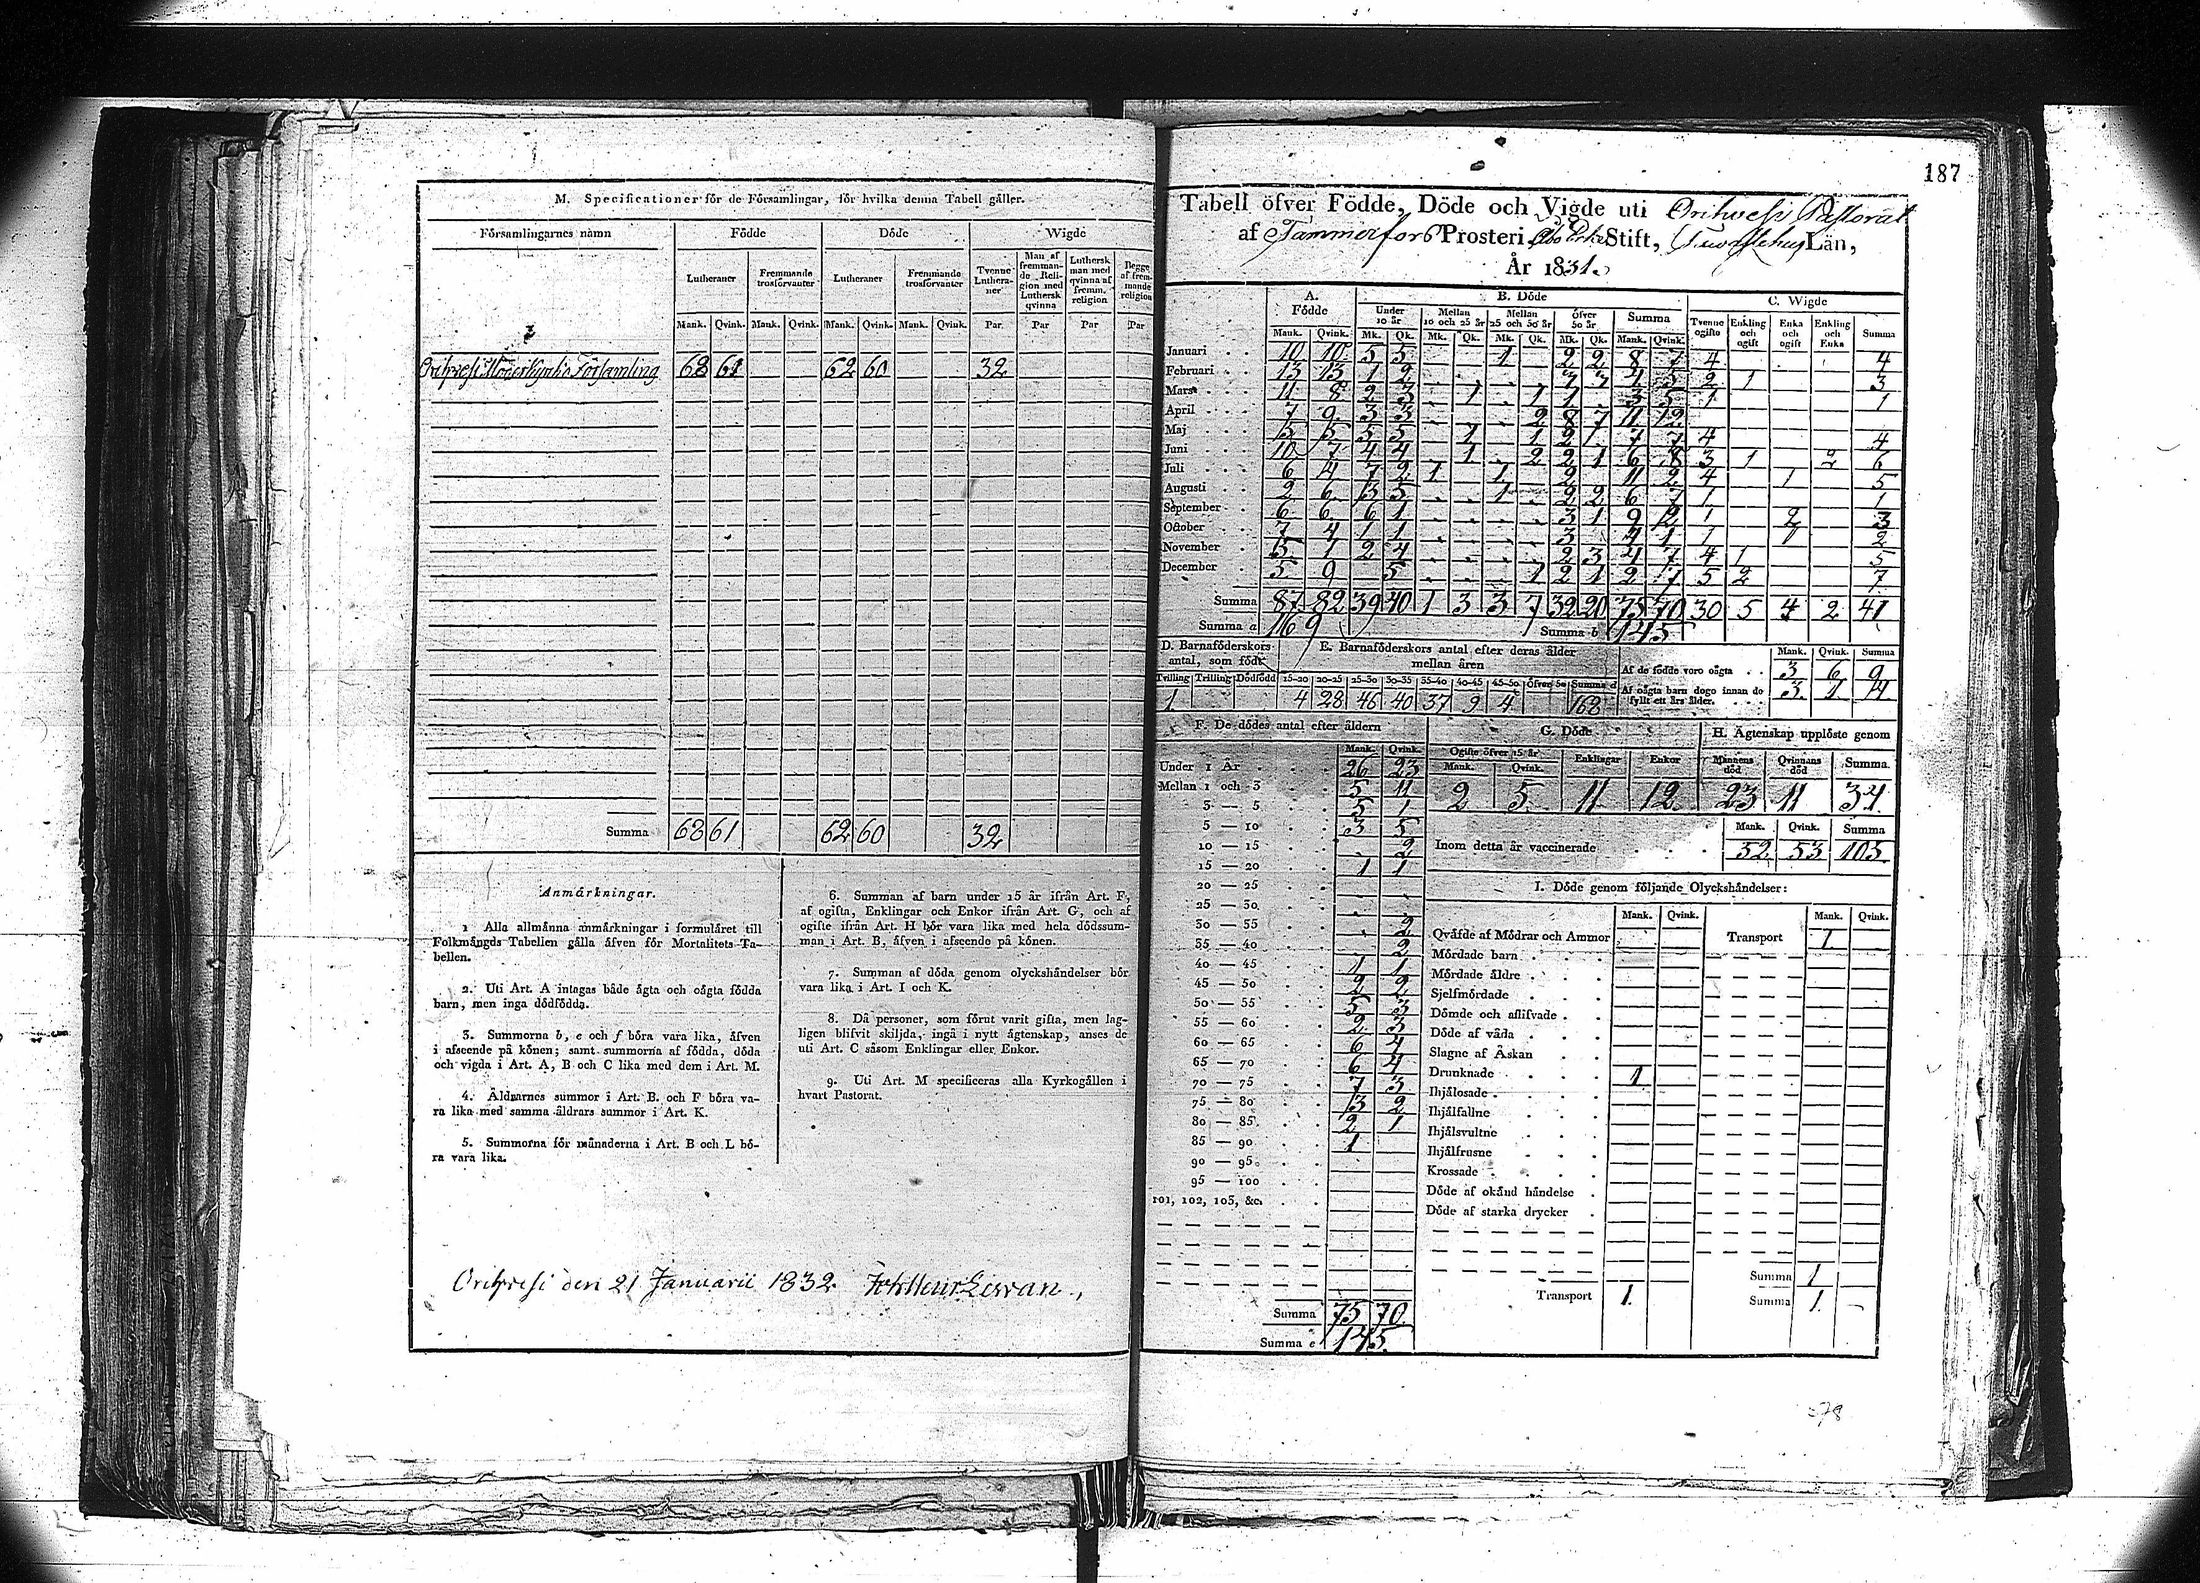 M. Specificationer för de Församlingar, för hvilka denna Tabell gäller.
Församlingarnes namn Födde Döde Wigde
Lutheraner Fremmande trosförvanter Lutheraner Fremmande trosförvanter Tvenne Lutheraner Man af fremmande Religion med Luthersk qvinna Luthersk man med qvinna af fremm. religion Begge af fremmande religion
Mank. Qvink. Mank. Qvink. Mank. Qvink. Mank. Qvink. Par. Par Par Par
Orihvesi Moderkyrko Församling 68 61 62 60 32
Summa 68 61 62 60 32
Anmärkningar.
1 Alla allmänna anmärkningar i formuläret till
Folkmängds Tabellen gälla äfven för Mortalitets Ta-
bellen.
2. Uti Art. A intagas både ägta och oägta födda
barn, men inga dödfödda.
3. Summorna b, e och f böra vara lika, äfven
i afseende på könen; samt summorna af födda, döda
och vigda i Art. A, B och C lika med dem i Art. M.
4. Åldrarnes summor i Art. B och F böra va-
ra lika med samma åldrars summor i Art. K.
5. Summorna för månaderna i Art. B och L bö-
ra vara lika.
6. Summan af barn under 15 år ifrån Art. F,
af ogifta, Enklingar och Enkor ifrån Art. G, och af
ogifte ifrån Art. H bör vara lika med hela dödssum-
man i Art. B, äfven i afseende på könen.
7. Summan af döda genom olyckshändelser bör
vara lika i Art. I och K.
8. Då personer, som förut varit gifta, men lag-
ligen blifvit skiljda, ingå i nytt ägtenskap, anses de
uti Art. C såsom Enklingar eller Enkor.
9. Uti Art. M specificeras alla Kyrkogällen i
hvart Pastorat.
Orihvesi den 21 Januarii 1832.
187
Tabell öfver Födde, Döde och Vigde uti Orihvesi Pastorat
af Tammerfors Prosteri Åbo Erke Stift, Tavastehus Län,
År 1831.
A. Födde B. Döde C. Wigde
Under 10 år Mellan 10 och 25 år Mellan 25 och 50 år Öfver 50 år Summa Tvenne ogifte Enkling och ogift Enka och ogift Enkling och Enka Summa
Mank. Qvink. Mk. Qk. Mk. Qk. Mk. Qk. Mk. Qk. Mank. Qvink.
Januari 10 10 5 5 1 2 2 8 7 4 4
Februari 13 13 1 2 2 1 3
Mars 11 8 2 3 1 1 1 3 5 1 1
April 7 9 3 3 2 8 7 11 12
Maj 5 5 1 1 2 1 7 7 4 4
Juni 10 7 4 4 1 2 2 1 6 8 3 1 2 6
Juli 6 4 7 2 1 1 2 11 2 4 1 5
Augusti 2 6 3 5 1 2 2 6 7 1 1
September 6 6 6 1 3 1 9 2 1 2 3
October 7 4 1 1 3 4 1 1 1 2
November 5 1 2 4 2 3 4 7 4 1 5
December 5 9 5 1 2 1 2 7 5 2 7
Summa 87 82 39 40 1 3 3 7 32 20 75 70 30 5 4 2 41
Summa a 169 Summa b 145
D. Barnaföderskors antal, som födt E. Barnaföderskors antal efter deras ålder mellan åren
Mank. Qvink. Summa
Af de födde voro oägta 3 6 9
Af oägta barn dogo innan de fyllt ett års ålder. 3 1 4
Tvilling Trilling Dödfödd 15-20 20-25 25-30 30-35 35-40 40-45 45-50 Öfver 50 Summa d
1 4 28 46 40 37 9 4 168
F. De dödes antal efter åldern
Mank. Qvink.
Under 1 År 26 23
Mellan 1 och 3 5 11
3 — 5 5 1
5 — 10 3 5
10 — 15 2
15 — 20 1 1
20 — 25
25 — 30
30 — 35 2
35 — 40 2
40 — 45 1 1
45 — 50 2 2
50 — 55 5 3
55 — 60 2 3
60 — 65 6 4
65 — 70 6 4
70 — 75 7 3
75 — 80 3 2
80 — 85 2 1
85 — 90 1
90 — 95
95 — 100
101, 102, 103, &c.
Summa 75 70
Summa e 145.
G. Döde
Ogifte öfver 15 år Enklingar Enkor
Mank. Qvink.
2 5 11 12
H. Ägtenskap upplöste genom
Mannens död Qvinnans död Summa
23 11 34
Mank. Qvink. Summa
Inom detta år vaccinerade 52 53 105
I. Döde genom följande Olyckshändelser:
Mank. Qvink. Mank. Qvink.
Qväfde af Mödrar och Ammor Transport 1
Mördade barn
Mördade äldre
Sjelfmördade
Dömde och aflifvade
Döde af våda
Slagne af Åskan
Drunknade 1
Ihjälosade
Ihjälfallne
Ihjälsvultne
Ihjälfrusne
Krossade
Döde af okänd händelse
Döde af starka drycker
Summa 1
Transport 1. Summa 1.